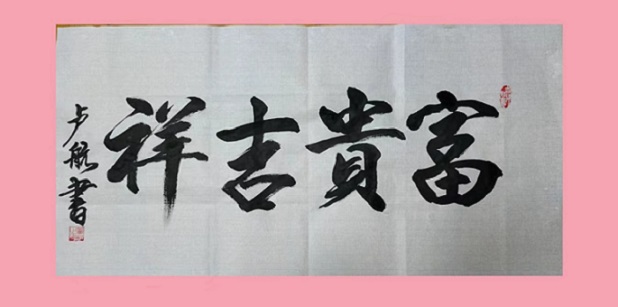 富貴吉祥
卢航書